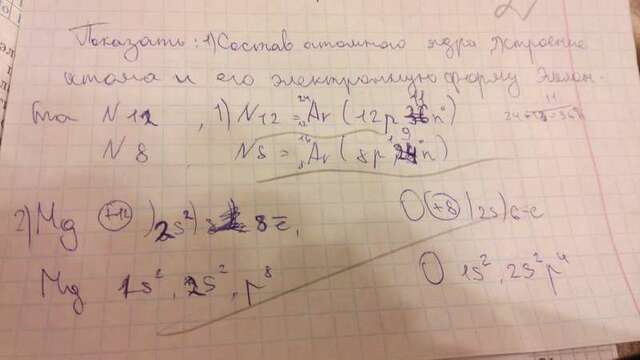 Показать: 1) Состав атомного ядра, строение
атома и его электронную форму Элемен-
та N 12 , 1) N12 = Ar (12p n°)
N 8 N8 = Ar (8p n°)
2) Mg +12 ) 2s²) 8ē, O +8 ) 2s) 6ē
Mg 1s², 2s², p⁸ O 1s², 2s² p⁴